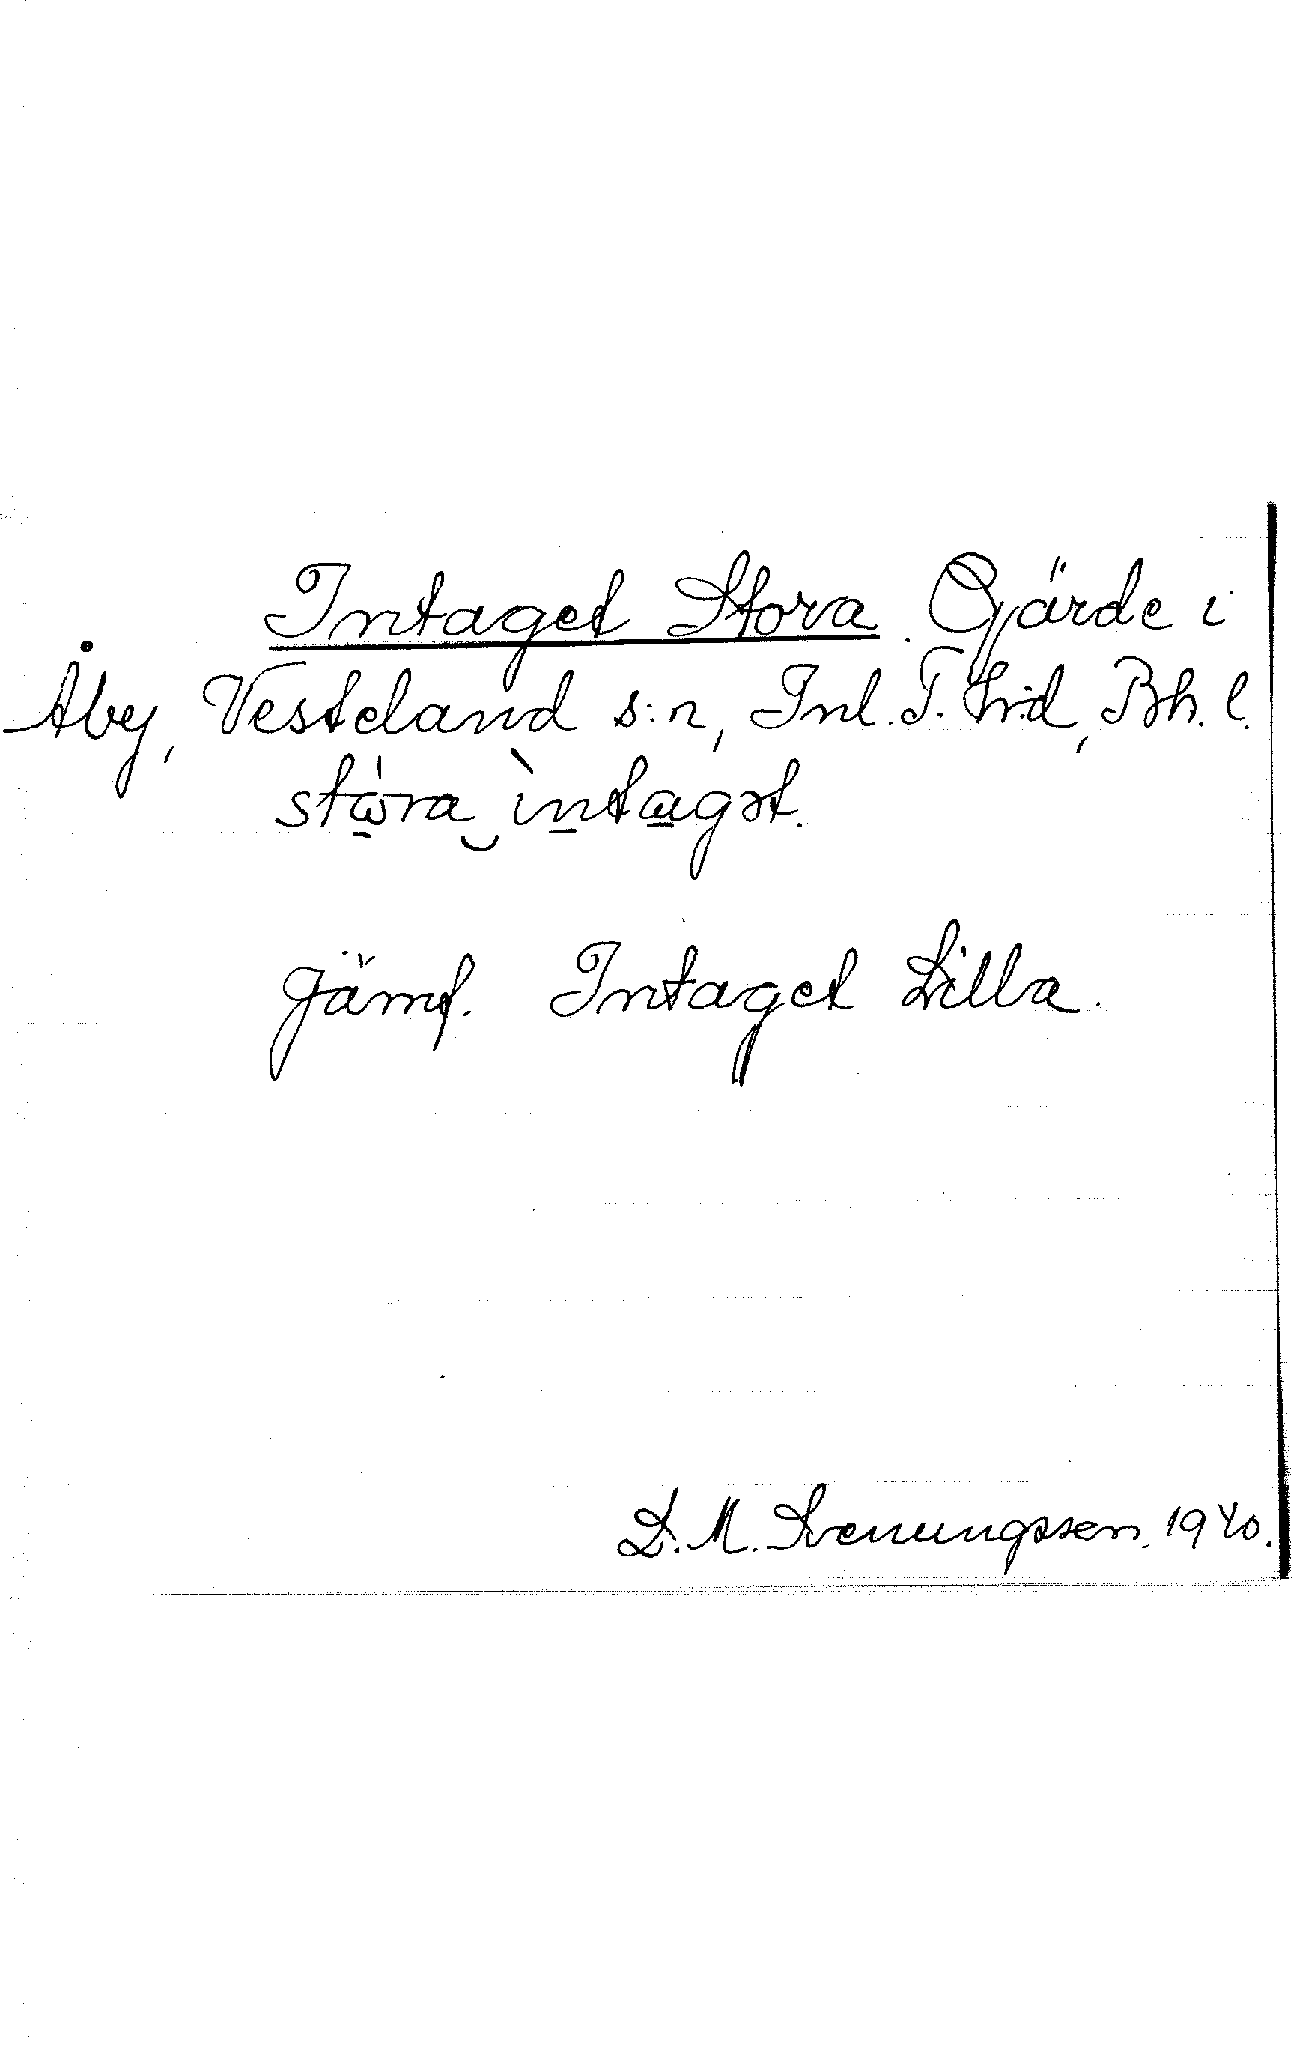 Intaget Stora. Gjärde i
Åby, Vesteland s:n, Inl. T. hrd, Bh. l.
stωra ̮ìntagət.
Jämf. Intaget Lilla.
D. M. Svenungsson 1940.